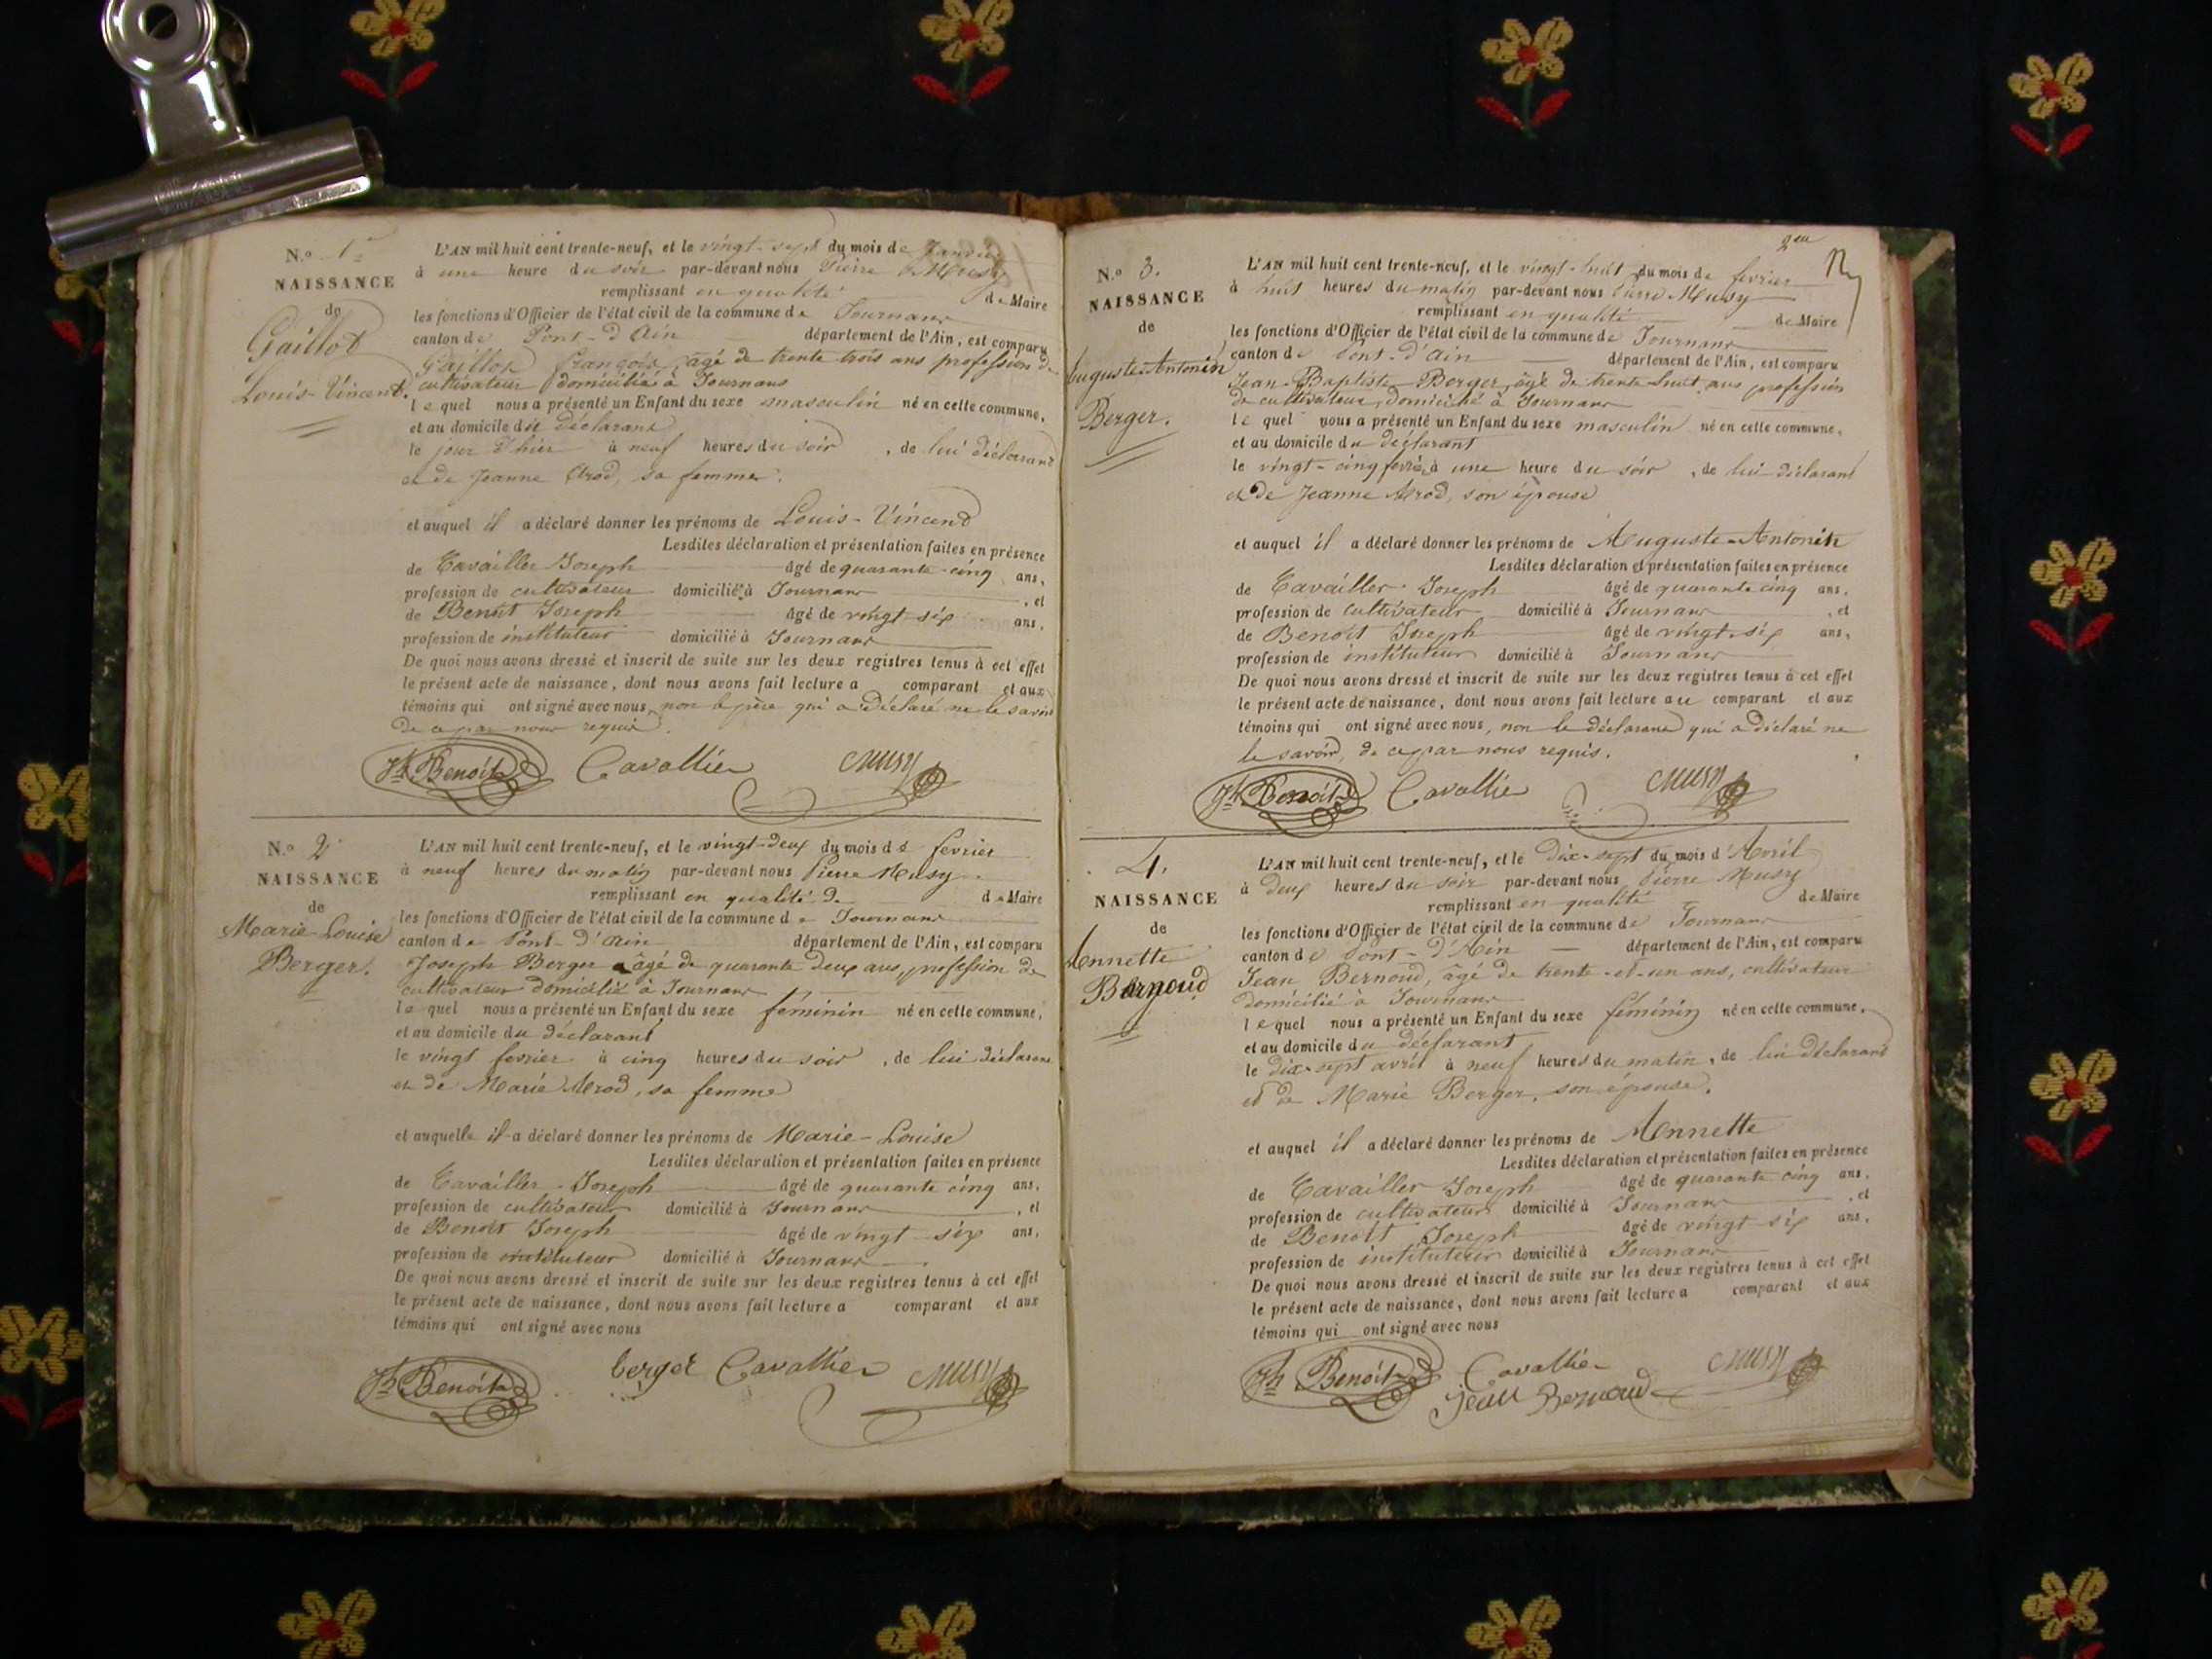 N.o 1er
NAISSANCE
de
Gaillot
Louis-Vincent.
L'AN mil huit cent trente-neuf, et le vingt-sept du mois de Janvier
à une heure du soir par-devant nous Pierre Musy
remplissant en qualité de Maire
les fonctions d'Officier de l'état civil de la commune de Journans
canton de Pont-d'Ain département de l'Ain, est comparu
Gaillot François, âgé de trente trois ans profession de
cultivateur domicilié à Journans
lequel nous a présenté un Enfant du sexe masculin né en cette commune,
et au domicile du déclarant
le jour d'hier à neuf heures du soir, de lui déclarant
et de Jeanne Arod, sa femme.
et auquel il a déclaré donner les prénoms de Louis-Vincent
Lesdites déclaration et présentation faites en présence
de Cavaillier Joseph âgé de quarante-cinq ans,
profession de cultivateur domicilié à Journans, et
de Benoît Joseph âgé de vingt-six ans,
profession de instituteur domicilié à Journans
De quoi nous avons dressé et inscrit de suite sur les deux registres tenus à cet effet
le présent acte de naissance, dont nous avons fait lecture a comparant et aux
témoins qui ont signé avec nous, non le père qui a déclaré ne le savoir
de ce par nous requis.
Jh Benoît Cavallier Musy
N.o 2
NAISSANCE
de
Marie-Louise
Berger.
L'AN mil huit cent trente-neuf, et le vingt-deux du mois de fevrier
à neuf heures du matin par-devant nous Pierre Musy
remplissant en qualité de de Maire
les fonctions d'Officier de l'état civil de la commune de Journans
canton de Pont-d'Ain département de l'Ain, est comparu
Joseph Berger âgé de quarante deux ans, profession de
cultivateur domicilié à Journans
lequel nous a présenté un Enfant du sexe féminin né en cette commune,
et au domicile du déclarant
le vingt fevrier à cinq heures du soir, de lui déclarant
et de Marie Arod, sa femme
et auquelle il a déclaré donner les prénoms de Marie-Louise
Lesdites déclaration et présentation faites en présence
de Cavaillier Joseph âgé de quarante cinq ans,
profession de cultivateur domicilié à Journans, et
de Benoît Joseph âgé de vingt-six ans,
profession de instituteur domicilié à Journans.
De quoi nous avons dressé et inscrit de suite sur les deux registres tenus à cet effet
le présent acte de naissance, dont nous avons fait lecture a comparant et aux
témoins qui ont signé avec nous
Jh Benoît berger Cavallier Musy
N.o 3.
NAISSANCE
de
Auguste-Antonin
Berger.
L'AN mil huit cent trente-neuf, et le vingt-huit du mois de fevrier
à huit heures du matin par-devant nous Pierre Musy
remplissant en qualité de Maire
les fonctions d'Officier de l'état civil de la commune de Journans
canton de Pont-d'Ain département de l'Ain, est comparu
Jean-Baptiste Berger, âgé de trente huit ans profession
de cultivateur, domicilié à Journans
lequel nous a présenté un Enfant du sexe masculin né en cette commune,
et au domicile du déclarant
le vingt-cinq fevrier à une heure du soir, de lui déclarant
et de Jeanne Arod, son épouse
et auquel il a déclaré donner les prénoms de Auguste-Antonin
Lesdites déclaration et présentation faites en présence
de Cavaillier Joseph âgé de quarante cinq ans,
profession de cultivateur domicilié à Journans, et
de Benoît Joseph âgé de vingt-six ans,
profession de instituteur domicilié à Journans
De quoi nous avons dressé et inscrit de suite sur les deux registres tenus à cet effet
le présent acte de naissance, dont nous avons fait lecture au comparant et aux
témoins qui ont signé avec nous, non le déclarant qui a déclaré ne
le savoir, de ce par nous requis.
Jh Benoît Cavallier Musy
4.
NAISSANCE
de
Annette
Bernoud
L'AN mil huit cent trente-neuf, et le Dix-sept du mois d'Avril
à deux heures du soir par-devant nous Pierre Musy
remplissant en qualité de Maire
les fonctions d'Officier de l'état civil de la commune de Journans
canton de Pont-d'Ain département de l'Ain, est comparu
Jean Bernoud, âgé de trente-et-un ans, cultivateur
domicilié à Journans
lequel nous a présenté un Enfant du sexe féminin né en cette commune,
et au domicile du déclarant
le dix-sept avril à neuf heures du matin, de lui déclarant
et de Marie Berger, son épouse.
et auquel il a déclaré donner les prénoms de Annette
Lesdites déclaration et présentation faites en présence
de Cavaillier Joseph âgé de quarante cinq ans,
profession de cultivateur domicilié à Journans, et
de Benoît Joseph âgé de vingt-six ans,
profession de instituteur domicilié à Journans
De quoi nous avons dressé et inscrit de suite sur les deux registres tenus à cet effet
le présent acte de naissance, dont nous avons fait lecture a comparant et aux
témoins qui ont signé avec nous
Jh Benoît Cavallier Musy
Jean Bernoud